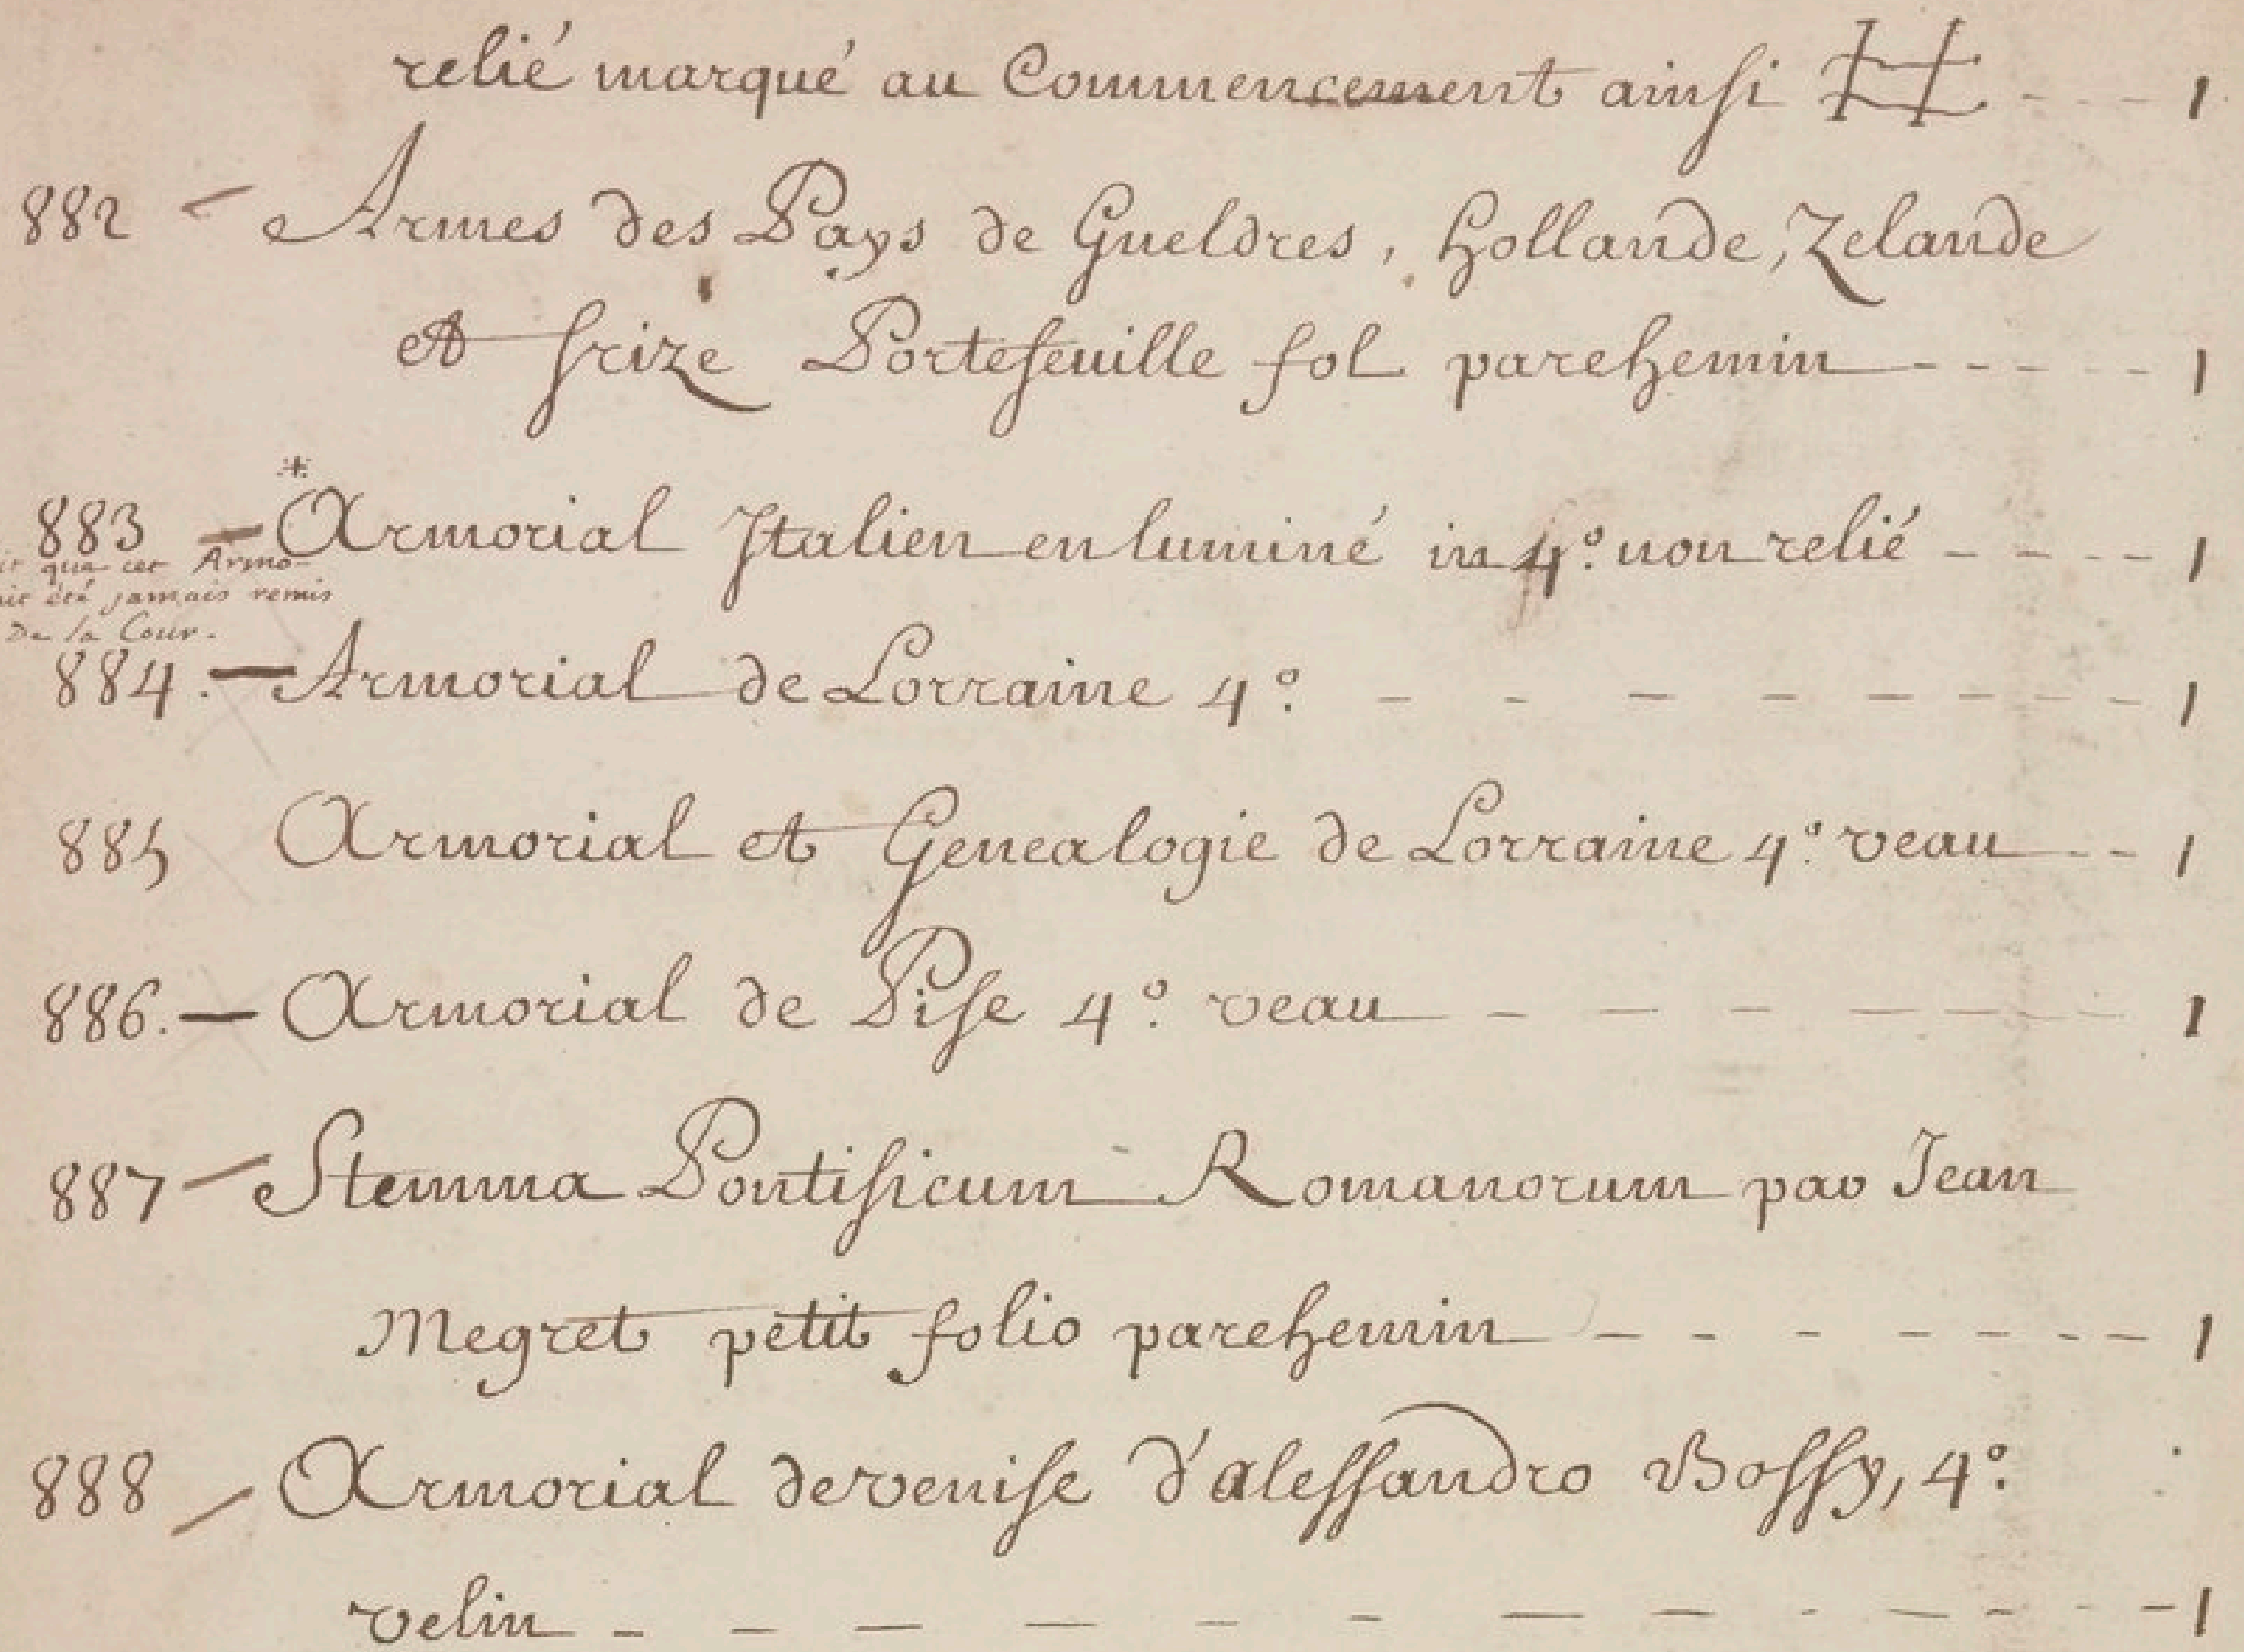 relié marqué au Commencement ainsi - - - 1
882 - Armes des Pays de Gueldres, hollande, Zelande
et frize Portefeuille fol parchemin - - - - - 1
*
883 - Armorial Italien enluminé in 4º non relié - - - - 1
que cet Armo-
été jamais remis
De la Cour.
884. - Armorial de Lorraine 4º - - - - - - - - - 1
885 Armorial et Genealogie de Lorraine 4º veau - - 1
886. - Armorial de Pise 4º veau - - - - - - - 1
887 - Stemma Pontificum Romanorum par Jean
Megret petit folio parchemin - - - - - - - - 1
888 - Armorial de venise d'alessandro Bossy, 4º
velin - - - - - - - - - - - - - 1